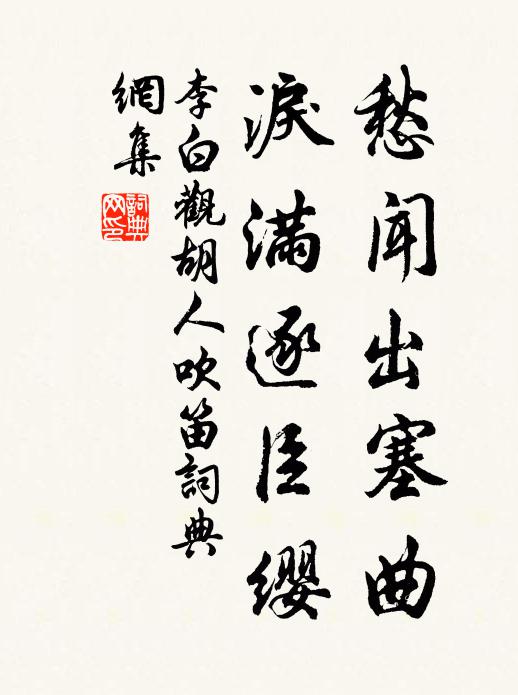 愁聞出塞曲
淚滿逐臣缨
李白觀胡人吹笛詞典
網集
詞典
网印